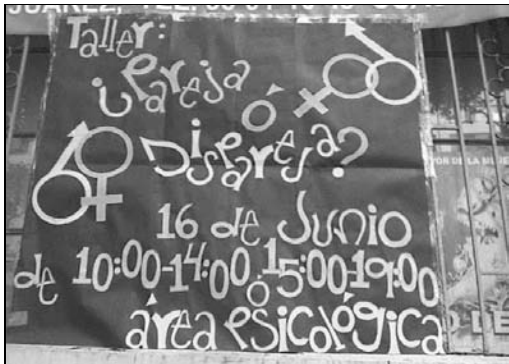 Taller:
¿Pareja
ó
Dispareja?
16 de Junio
de 10:00-14:00 ó 15:00-19:00
área psicológica